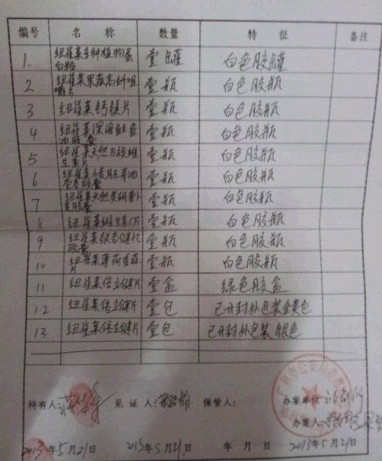 编号 名称 数量 特征 备注
1. 纽崔莱多种植物蛋白粉 壹罐 白色胶罐
2 纽崔莱果蔬纤咀嚼片 壹瓶 白色胶瓶
3 纽崔莱钙镁片 壹瓶 白色胶瓶
4 纽崔莱深海鲑鱼油胶囊 壹瓶 白色胶瓶
5 纽崔莱天然B族维生素片 壹瓶 白色胶瓶
6 纽崔莱 壹瓶 白色胶瓶
7 纽崔莱天然类胡萝卜素胶囊 壹瓶 白色胶瓶
8 纽崔莱 片 壹瓶 白色胶瓶
9 纽崔莱银杏 壹瓶 白色胶瓶
10 纽崔莱薄荷香蒜片 壹瓶 白色胶瓶
11 纽崔莱倍立健片 壹盒 绿色胶盒
12 纽崔莱倍立健片 壹包 已开封外包装金色
13 纽崔莱倍立健片 壹包 已开封外包装银色
持有人: 见证人: 保管人: 办案单位:
办案人:
2013年5月21日 2013年5月21日 年 月 日 2013年5月21日